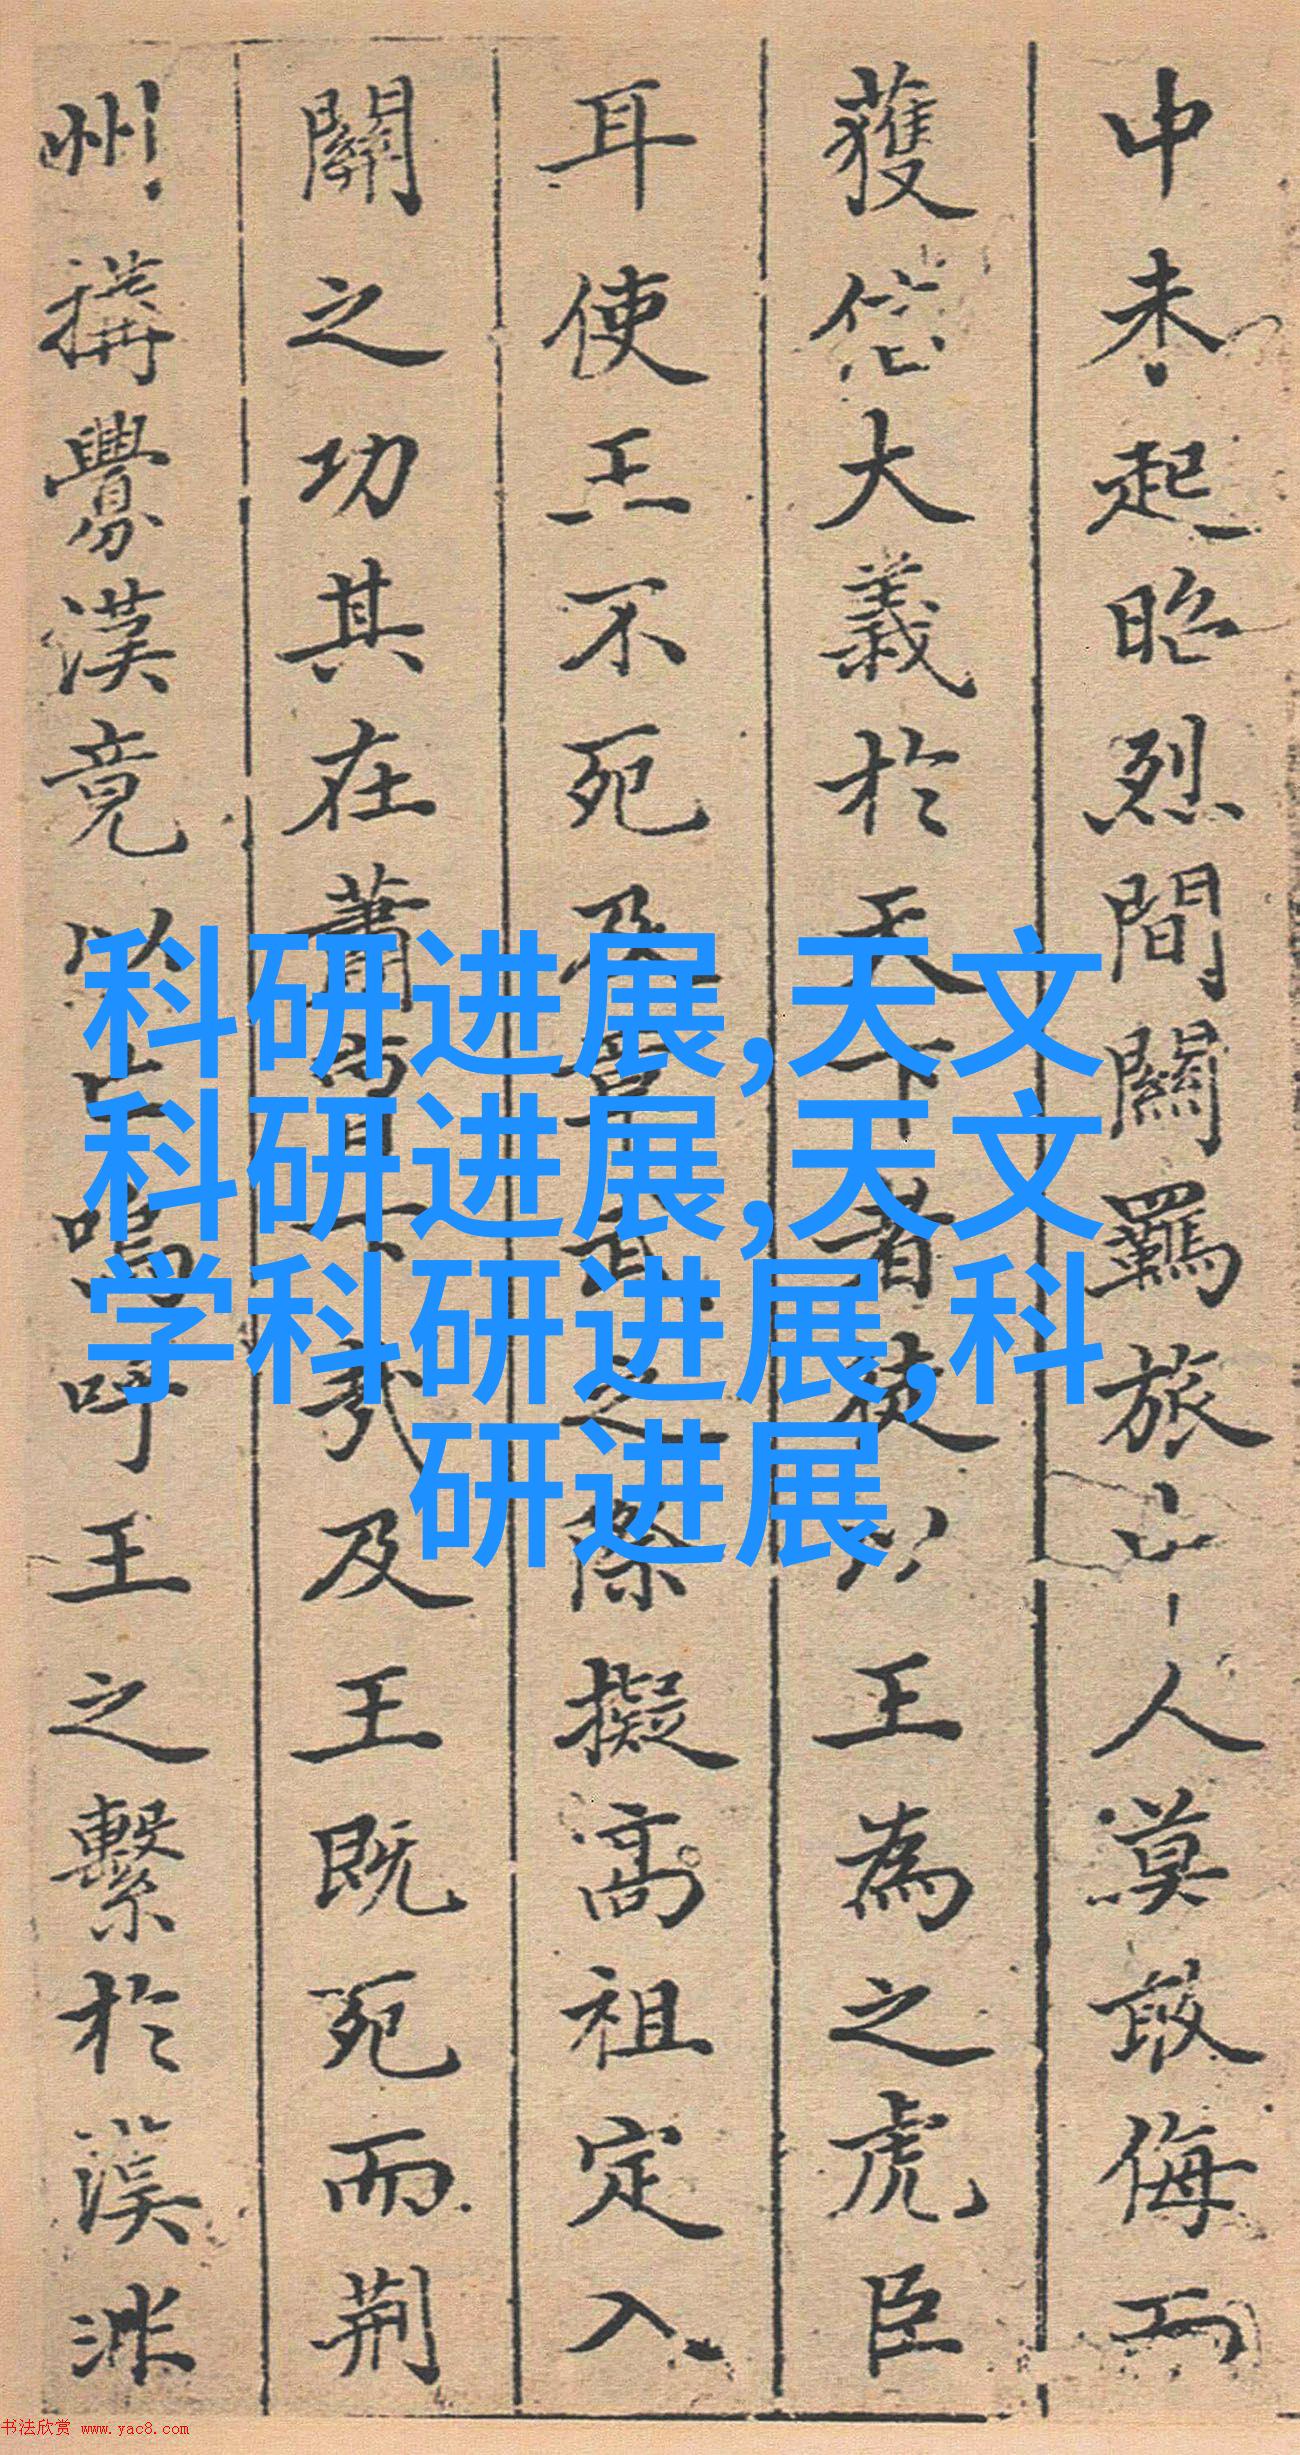 中未起昭烈間關羈旅人莫敢侮而
獲信大義於天下者徒以王為之虎臣
耳使王不死及章武之際擬高祖定入
關之功其在蕭曹下哉及王既死而荊
州搆釁漢竟以亡嗚呼王之繫於漢
科研进展,天文
科研进展,天文
学科研进展,科
研进展
书法欣赏 www.yac8.com